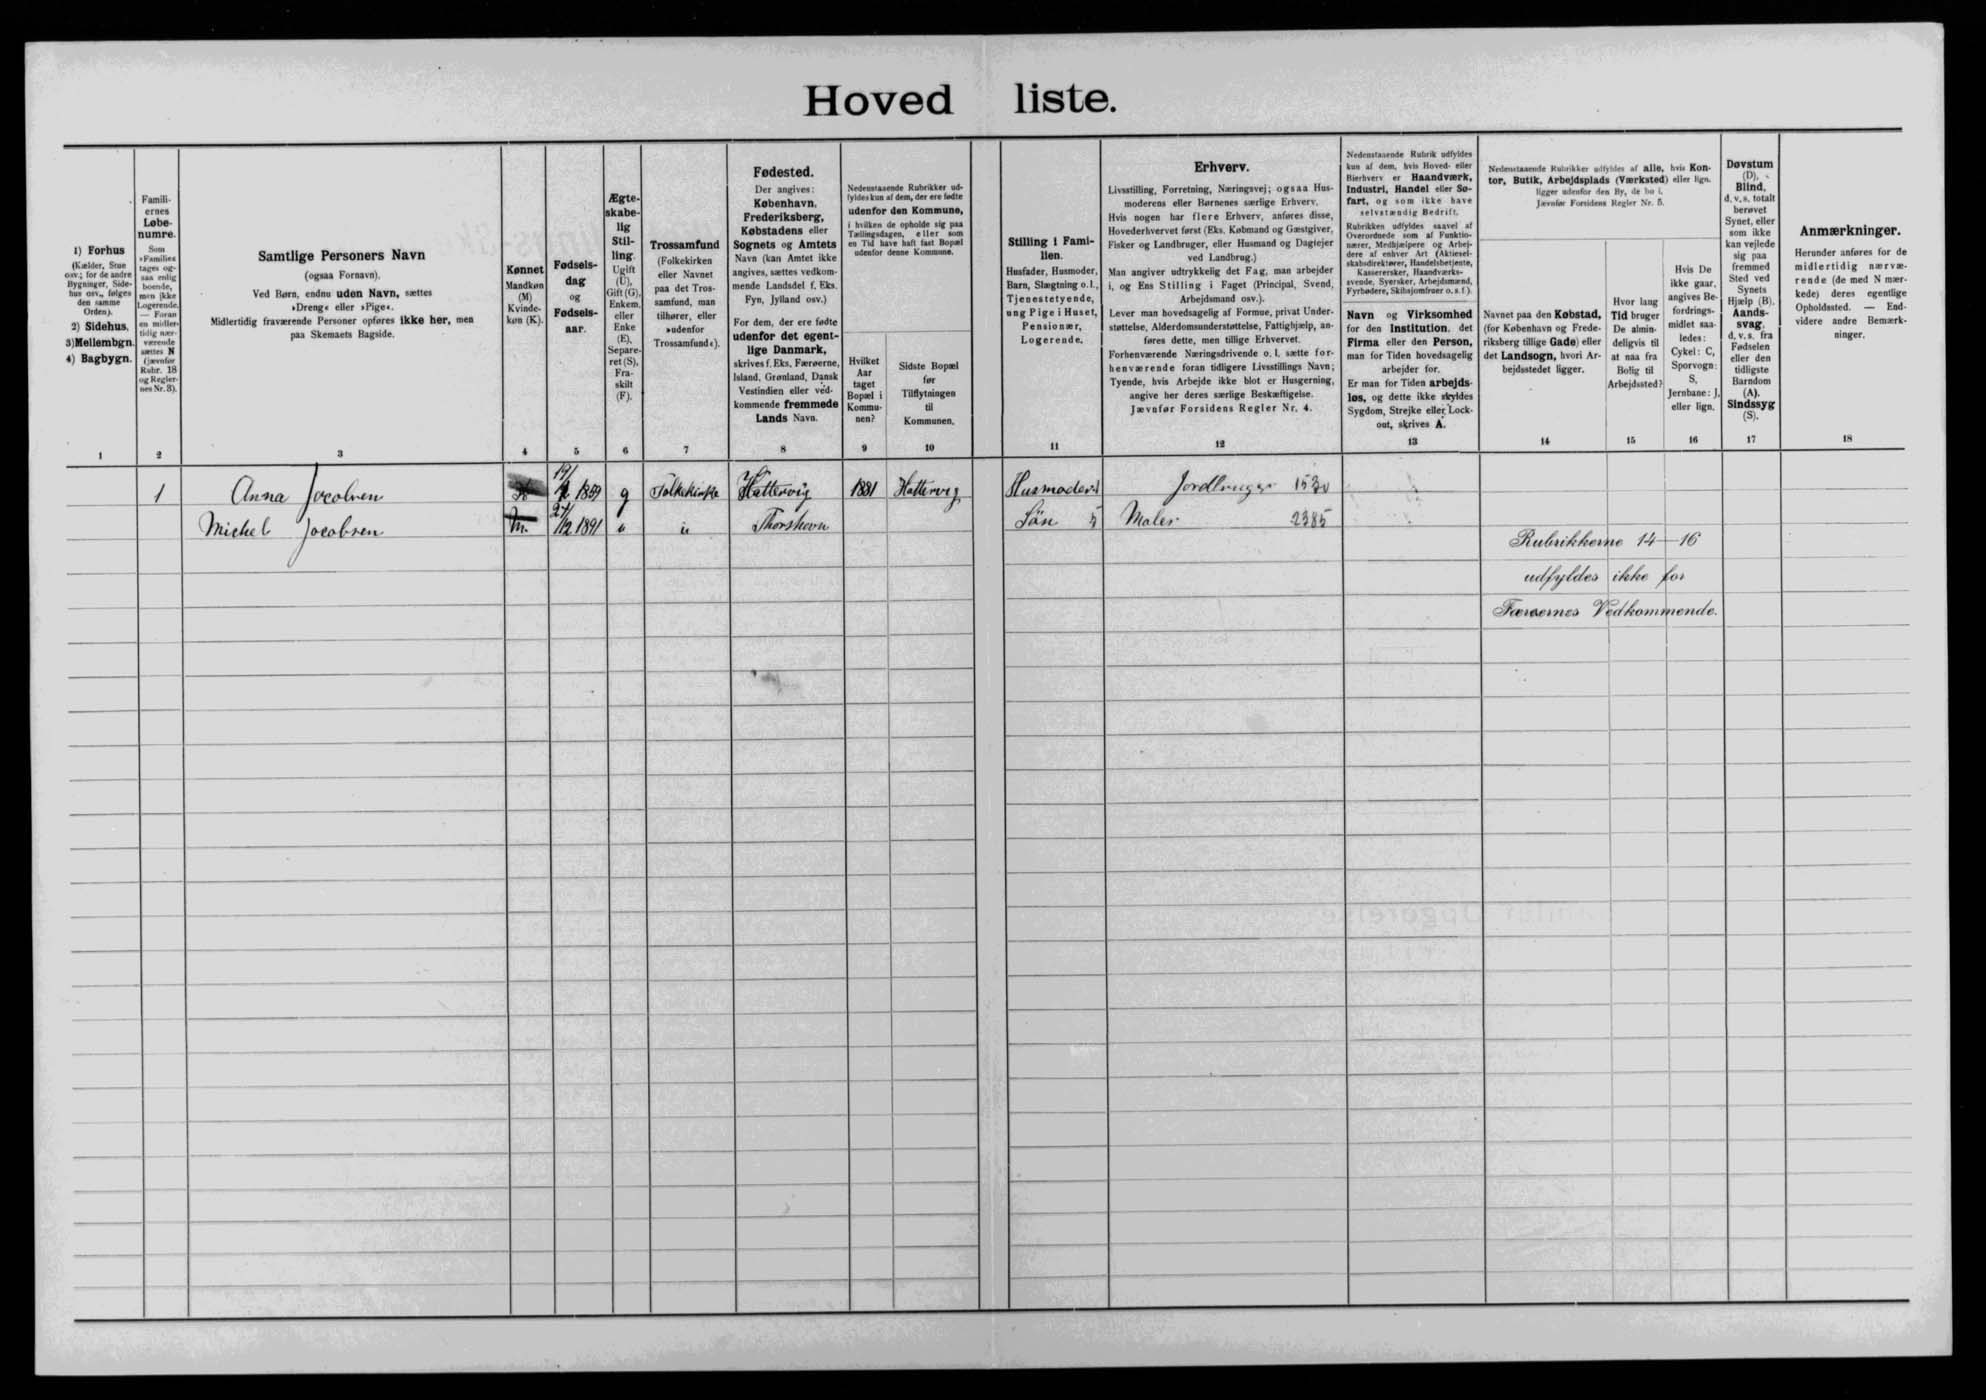 Hovedliste.
1) Forhus
(Kælder, Stue
osv.; for de andre
Bygninger, Side-
hus osv., følges
den samme
Orden).
2) Sidehus,
3) Mellembgn.
4) Bagbygn.
1
Famili-
ernes
Løbe-
numre.
Som
»Familie«
tages og-
saa enlig
boende,
men ikke
Logerende.
— Foran
en midler-
tidig nær-
værende
sættes N
(jævnfør
Rubr. 18
og Regler-
nes Nr. 3).
2
Samtlige Personers Navn
(ogsaa Fornavn).
Ved Børn, endnu uden Navn, sættes
»Dreng« eller »Pige«.
Midlertidig fraværende Personer opføres ikke her, men
paa Skemaets Bagside.
3
Kønnet
Mandkøn
(M)
Kvinde-
køn (K).
4
Fødsels-
dag
og
Fødsels-
aar.
5
Ægte-
skabe-
lig
Stil-
ling.
Ugift
(U),
Gift (G),
Enkem.
eller
Enke
(E),
Separe-
ret (S),
Fra-
skilt
(F).
6
Trossamfund
(Folkekirken
eller Navnet
paa det Tros-
samfund, man
tilhører, eller
»udenfor
Trossamfund«).
7
Fødested.
Der angives:
København,
Frederiksberg,
Købstadens eller
Sognets og Amtets
Navn (kan Amtet ikke
angives, sættes vedkom-
mende Landsdel f. Eks.
Fyn, Jylland osv.)
For dem, der ere fødte
udenfor det egent-
lige Danmark,
skrives f. Eks. Færøerne,
Island, Grønland, Dansk
Vestindien eller ved-
kommende fremmede
Lands Navn.
8
Nedenstaaende Rubrikker ud-
fyldes kun af dem, der ere fødte
udenfor den Kommune,
i hvilken de opholde sig paa
Tællingsdagen, eller som
en Tid have haft fast Bopæl
udenfor denne Kommune.
Hvilket
Aar
taget
Bopæl i
Kommu-
nen?
9
Sidste Bopæl
før
Tilflytningen
til
Kommunen.
10
Stilling i Fami-
lien.
Husfader, Husmoder,
Barn, Slægtning o. l.,
Tjenestetyende,
ung Pige i Huset,
Pensionær,
Logerende.
11
Erhverv.
Livsstilling, Forretning, Næringsvej; ogsaa Hus-
moderens eller Børnenes særlige Erhverv.
Hvis nogen har flere Erhverv, anføres disse,
Hovederhvervet først (Eks. Købmand og Gæstgiver,
Fisker og Landbruger, eller Husmand og Daglejer
ved Landbrug.)
Man angiver udtrykkelig det Fag, man arbejder
i, og Ens Stilling i Faget (Principal, Svend,
Arbejdsmand osv.).
Lever man hovedsagelig af Formue, privat Under-
støttelse, Alderdomsunderstøttelse, Fattighjælp, an-
føres dette, men tillige Erhvervet.
Forhenværende Næringsdrivende o. l. sætte for-
henværende foran tidligere Livsstillings Navn;
Tyende, hvis Arbejde ikke blot er Husgerning,
angive her deres særlige Beskæftigelse.
Jævnfør Forsidens Regler Nr. 4.
12
Nedenstaaende Rubrik udfyldes
kun af dem, hvis Hoved- eller
Bierhverv er Haandværk,
Industri, Handel eller Sø-
fart, og som ikke have
selvstændig Bedrift.
Rubrikken udfyldes saavel af
Overordnede som af Funktio-
nærer, Medhjælpere og Arbej-
dere af enhver Art (Aktiesel-
skabsdirektører, Handelsbetjente,
Kasserersker, Haandværks-
svende, Syersker, Arbejdsmænd,
Fyrbødere, Skibsjomfruer o. s. f.).
Navn og Virksomhed
for den Institution, det
Firma eller den Person,
man for Tiden hovedsagelig
arbejder for.
Er man for Tiden arbejds-
løs, og dette ikke skyldes
Sygdom, Strejke eller Lock-
out, skrives A.
13
Nedenstaaende Rubrikker udfyldes af alle, hvis Kon-
tor, Butik, Arbejdsplads (Værksted) eller lign.
ligger udenfor den By, de bo i.
Jævnfør Forsidens Regler Nr. 5.
Navnet paa den Købstad,
(for København og Frede-
riksberg tillige Gade) eller
det Landsogn, hvori Ar-
bejdsstedet ligger.
14
Hvor lang
Tid bruger
De almin-
deligvis til
at naa fra
Bolig til
Arbejdssted?
15
Hvis De
ikke gaar,
angives Be-
fordrings-
midlet saa-
ledes:
Cykel: C,
Sporvogn:
S,
Jernbane: J,
eller lign.
16
Døvstum
(D),
Blind,
d. v. s. totalt
berøvet
Synet, eller
som ikke
kan vejlede
sig paa
fremmed
Sted ved
Synets
Hjælp (B).
Aands-
svag,
d. v. s. fra
Fødselen
eller den
tidligste
Barndom
(A).
Sindssyg
(S).
17
Anmærkninger.
Herunder anføres for de
midlertidig nærvæ-
rende (de med N mær-
kede) deres egentlige
Opholdssted. — End-
videre andre Bemærk-
ninger.
18
1 Anna Jacobsen 19/2 1859 g Folkekirke Hattervig 1881 Hattervig Husmoder Jordbruger
Michel Jacobsen M. 27/12 1891 " " Thorshavn Sön 5 Maler 2385
Rubrikkerne 14—16
udfyldes ikke for
Færøernes Vedkommende.